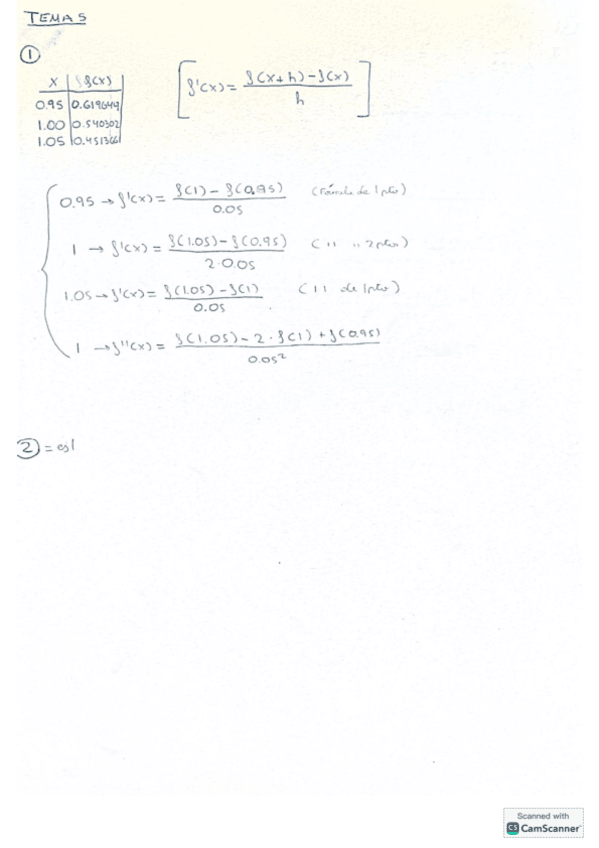 TEMA 5
①
x | f(x)
0.95 | 0.619644
1.00 | 0.540302
1.05 | 0.451366
[f'(x) = f(x+h) - f(x) / h]
0.95 → f'(x) = f(1) - f(0.95) / 0.05 (Fórmula de 1 pto)
1 → f'(x) = f(1.05) - f(0.95) / 2·0.05 (" " 2 pto)
1.05 → f'(x) = f(1.05) - f(1) / 0.05 (" de 1 pto)
1 → f''(x) = f(1.05) - 2·f(1) + f(0.95) / 0.05²
② =
Scanned with
CS CamScanner